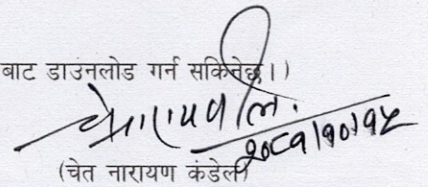 बाट डाउनलोड गर्न सकिनेछ।)
२०८१।१०।१५
(चेत नारायण कंडेल)